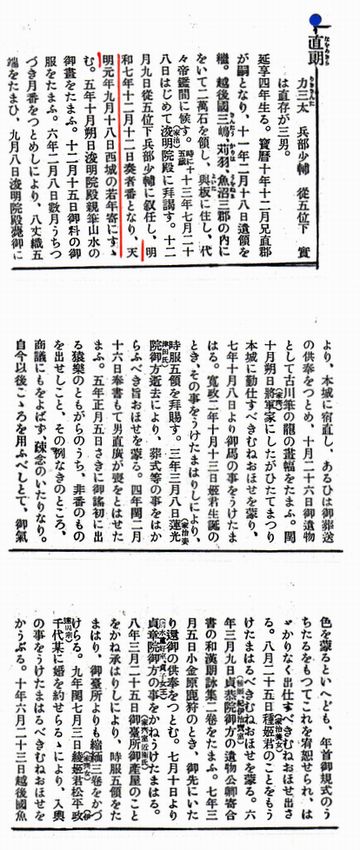 直朝
なほとも
力三太 兵部少輔 従五位下 實
は直存が三男。
延享四年生る。寶暦十年十二月兄直郡
が嗣となり、十一年二月十八日遺領を
繼。越後國三嶋、苅羽、魚沼三郡の内に
をいて二萬石を領し、與板に住し、代
々帝鑑間に候す。時に十五歳十三年七月二十
八日はじめて浚明院殿に拜謁す。十二
月九日從五位下兵部少輔に叙任し、明
和七年十二月十二日奏者番となり、天
明元年九月十八日西城の若年寄にすゝ
む。五年十月朔日浚明院殿親筆山水の
御畫をたまふ。十二月十五日御料の御
服をたまふ。六年二月八日數月うちつ
づき月番をつとめしにより、八丈織五
端をたまひ、九月八日浚明院殿薨御に
より、本城に宿直し、あるひは御葬送
の供奉をつとめ、十月二十六日御遺物
として古川筆の龍の畫幅をたまふ。閏
十月朔日將軍家にしたがひたてまつり
本城に勤仕すべきむねおほせを蒙り、
七年十月八日より御馬の事をうけたま
はる。寛政二年十月十三日姬君生誕の
とき、その事をうけたまはりしにより、
時服五領を拜賜す。三年三月八日蓮光
院御方逝去により、葬式等の事をはか
らふべき旨おほせを蒙る。四年閏二月
十六日奉書もて男直廣が喪をとはせた
まふ。五年正月五日さきに御謠初に出
る猿樂のともがらのうち、非番のもの
を出せしこと、その例なきのところ、
商議にもをよばず、疎念のいたりなり。
自今以後こゝろを用ふべしとて、御氣
色を蒙るといへども、年首御規式のう
ちたるをもつてこれを宥恕せられ、は
ゞかりなく出仕すべきむねおほせ出さ
る。八月二十五日種姬君のことをもう
けたまはるべきむねおほせを蒙る。六
年三月九日貞恭院御方の遺物公卿寄合
書の和漢朗詠集二卷をたまふ。七年三
月五日小金原鹿狩のとき、御先にいた
り還御の供奉をつとむ。七月十日より
貞章院御方の事をかねうけたまはる。
八年三月二十五日御臺所御產間のこと
をかね承はりしにより、時服五領をた
まはり、御臺所よりも縮緬三卷をかづ
けらる。九年閏七月三日綾姬君松平政
千代某に婚を約せらるゝにより、入輿
の事をうけたまはるべきむねおほせを
かうぶる。十年六月二十三日越後國魚